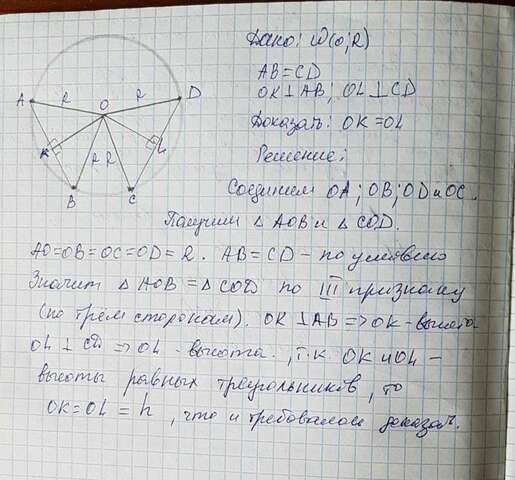 Дано: ω(O;R)
AB=CD
OK⊥AB, OL⊥CD
Доказать: OK=OL
Решение:
Соединим OA; OB; OD и OC.
Получим △AOB и △COD.
AO=OB=OC=OD=R. AB=CD – по условию
Значит △AOB=△COD по III признаку
(по трём сторонам). OK⊥AB=>OK-высота
OL⊥CD=>OL-высота., т.к. OK и OL –
высоты равных треугольников, то
OK=OL=h, что и требовалось доказать.
A
R
O
R
D
K
L
R
R
B
C